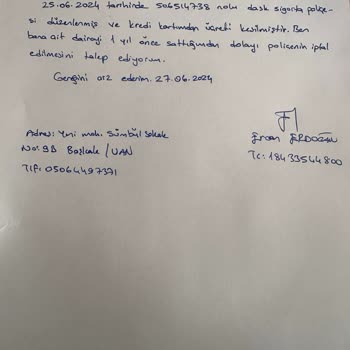 25.06.2024 tarihinde 506514738 nolu dask sigorta poliçe-
si düzenlenmiş ve kredi kartımdan ücreti kesilmiştir. Ben
bana ait daireyi 1 yıl önce sattığımdan dolayı poliçenin iptal
edilmesini talep ediyorum.
Gereğini arz ederim. 27.06.2024
Adres: Yeni mah. Sümbül Sokak
No: 9B Başkale / VAN
Tlf: 05064497371
Ercan ERDOĞAN
Tc: 18433544800